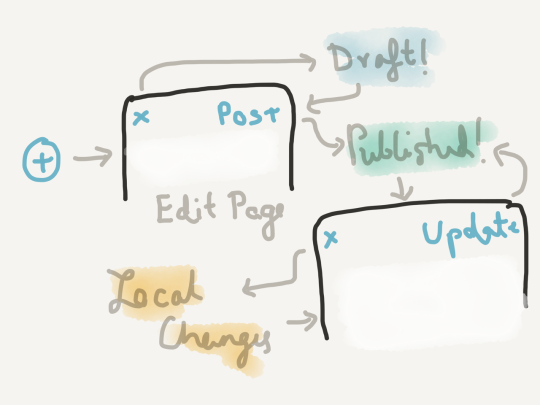 Draft!
x Post
+
Published!
Edit Page
x Update
Local
Changes